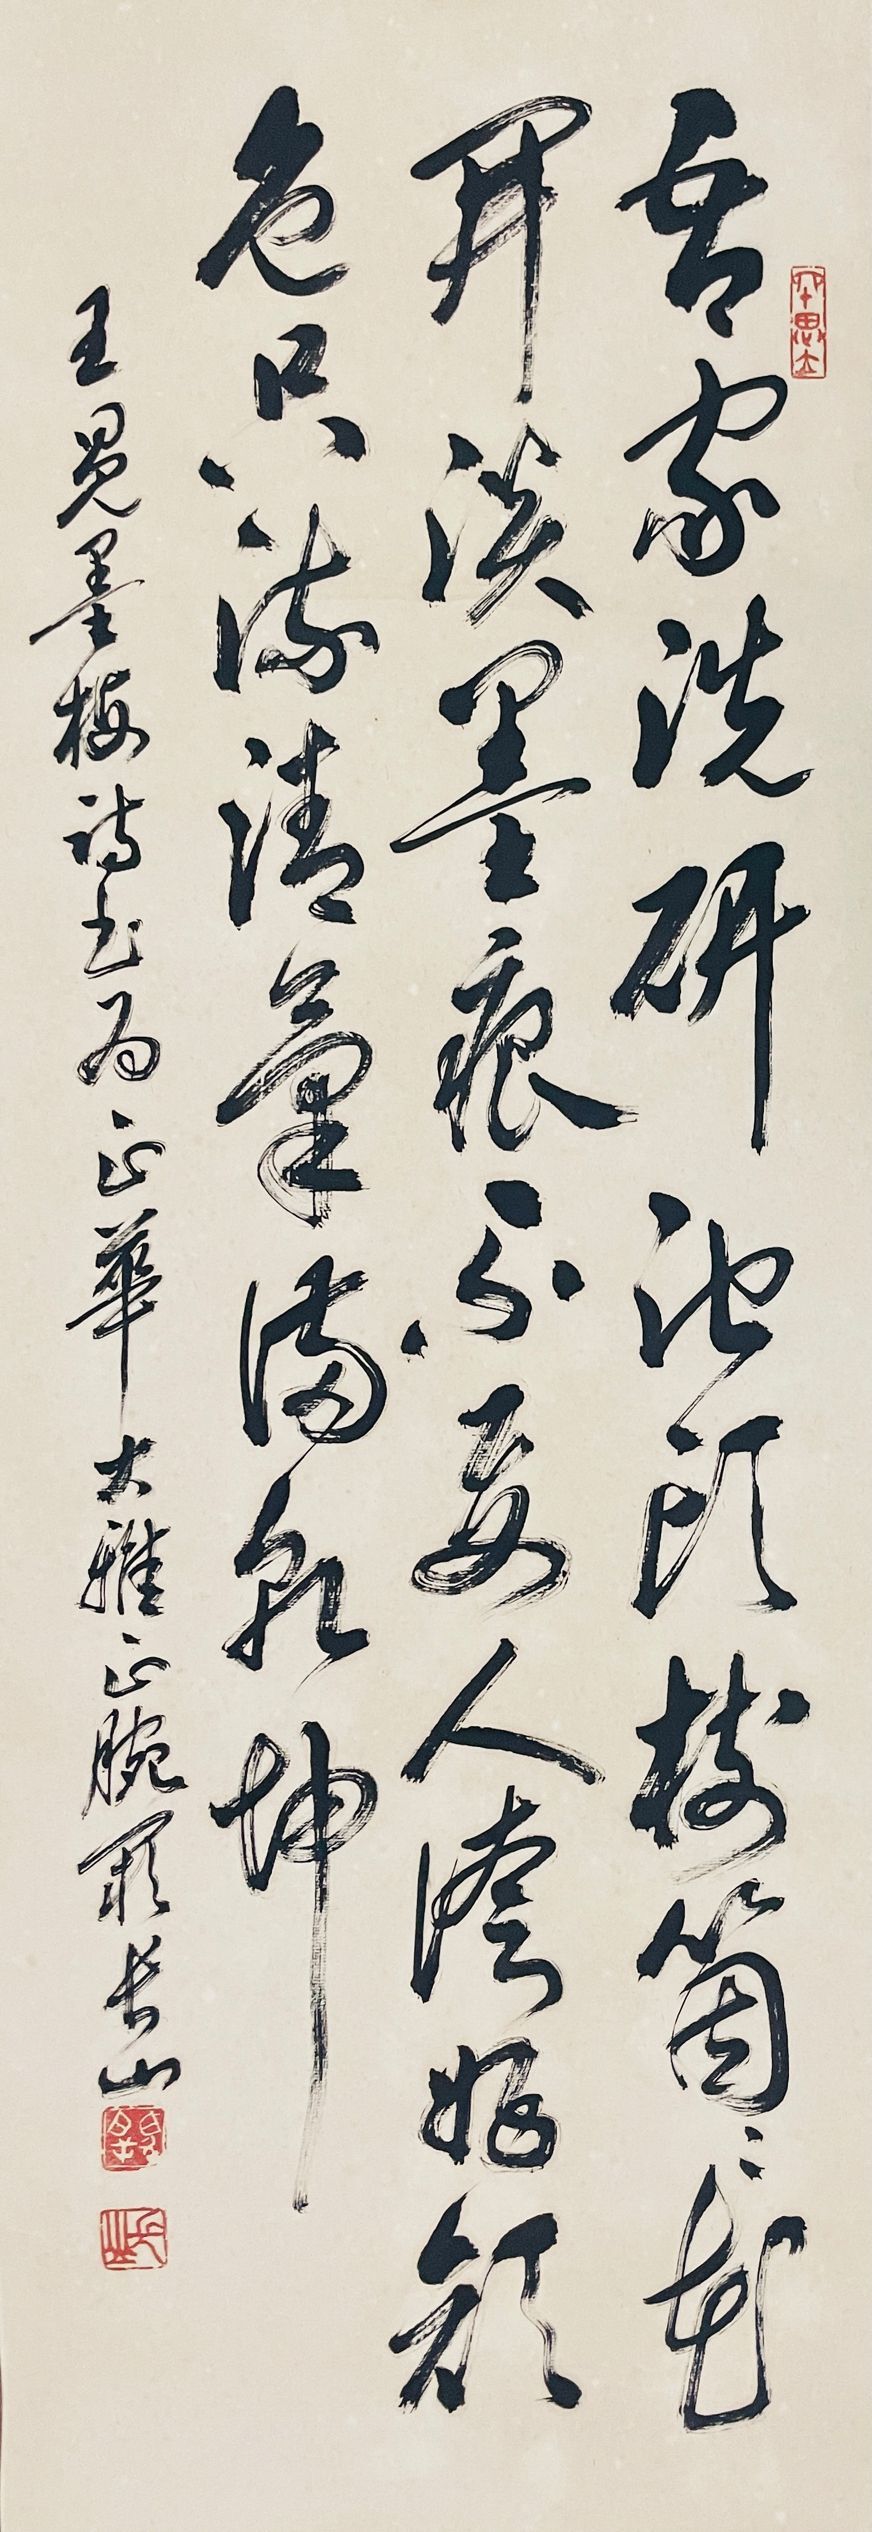 吾家洗研池頭樹箇〻花
開淡墨痕不要人誇好顔
色只流清氣滿乾坤
王冕墨梅詩書為正華大雅正腕長山